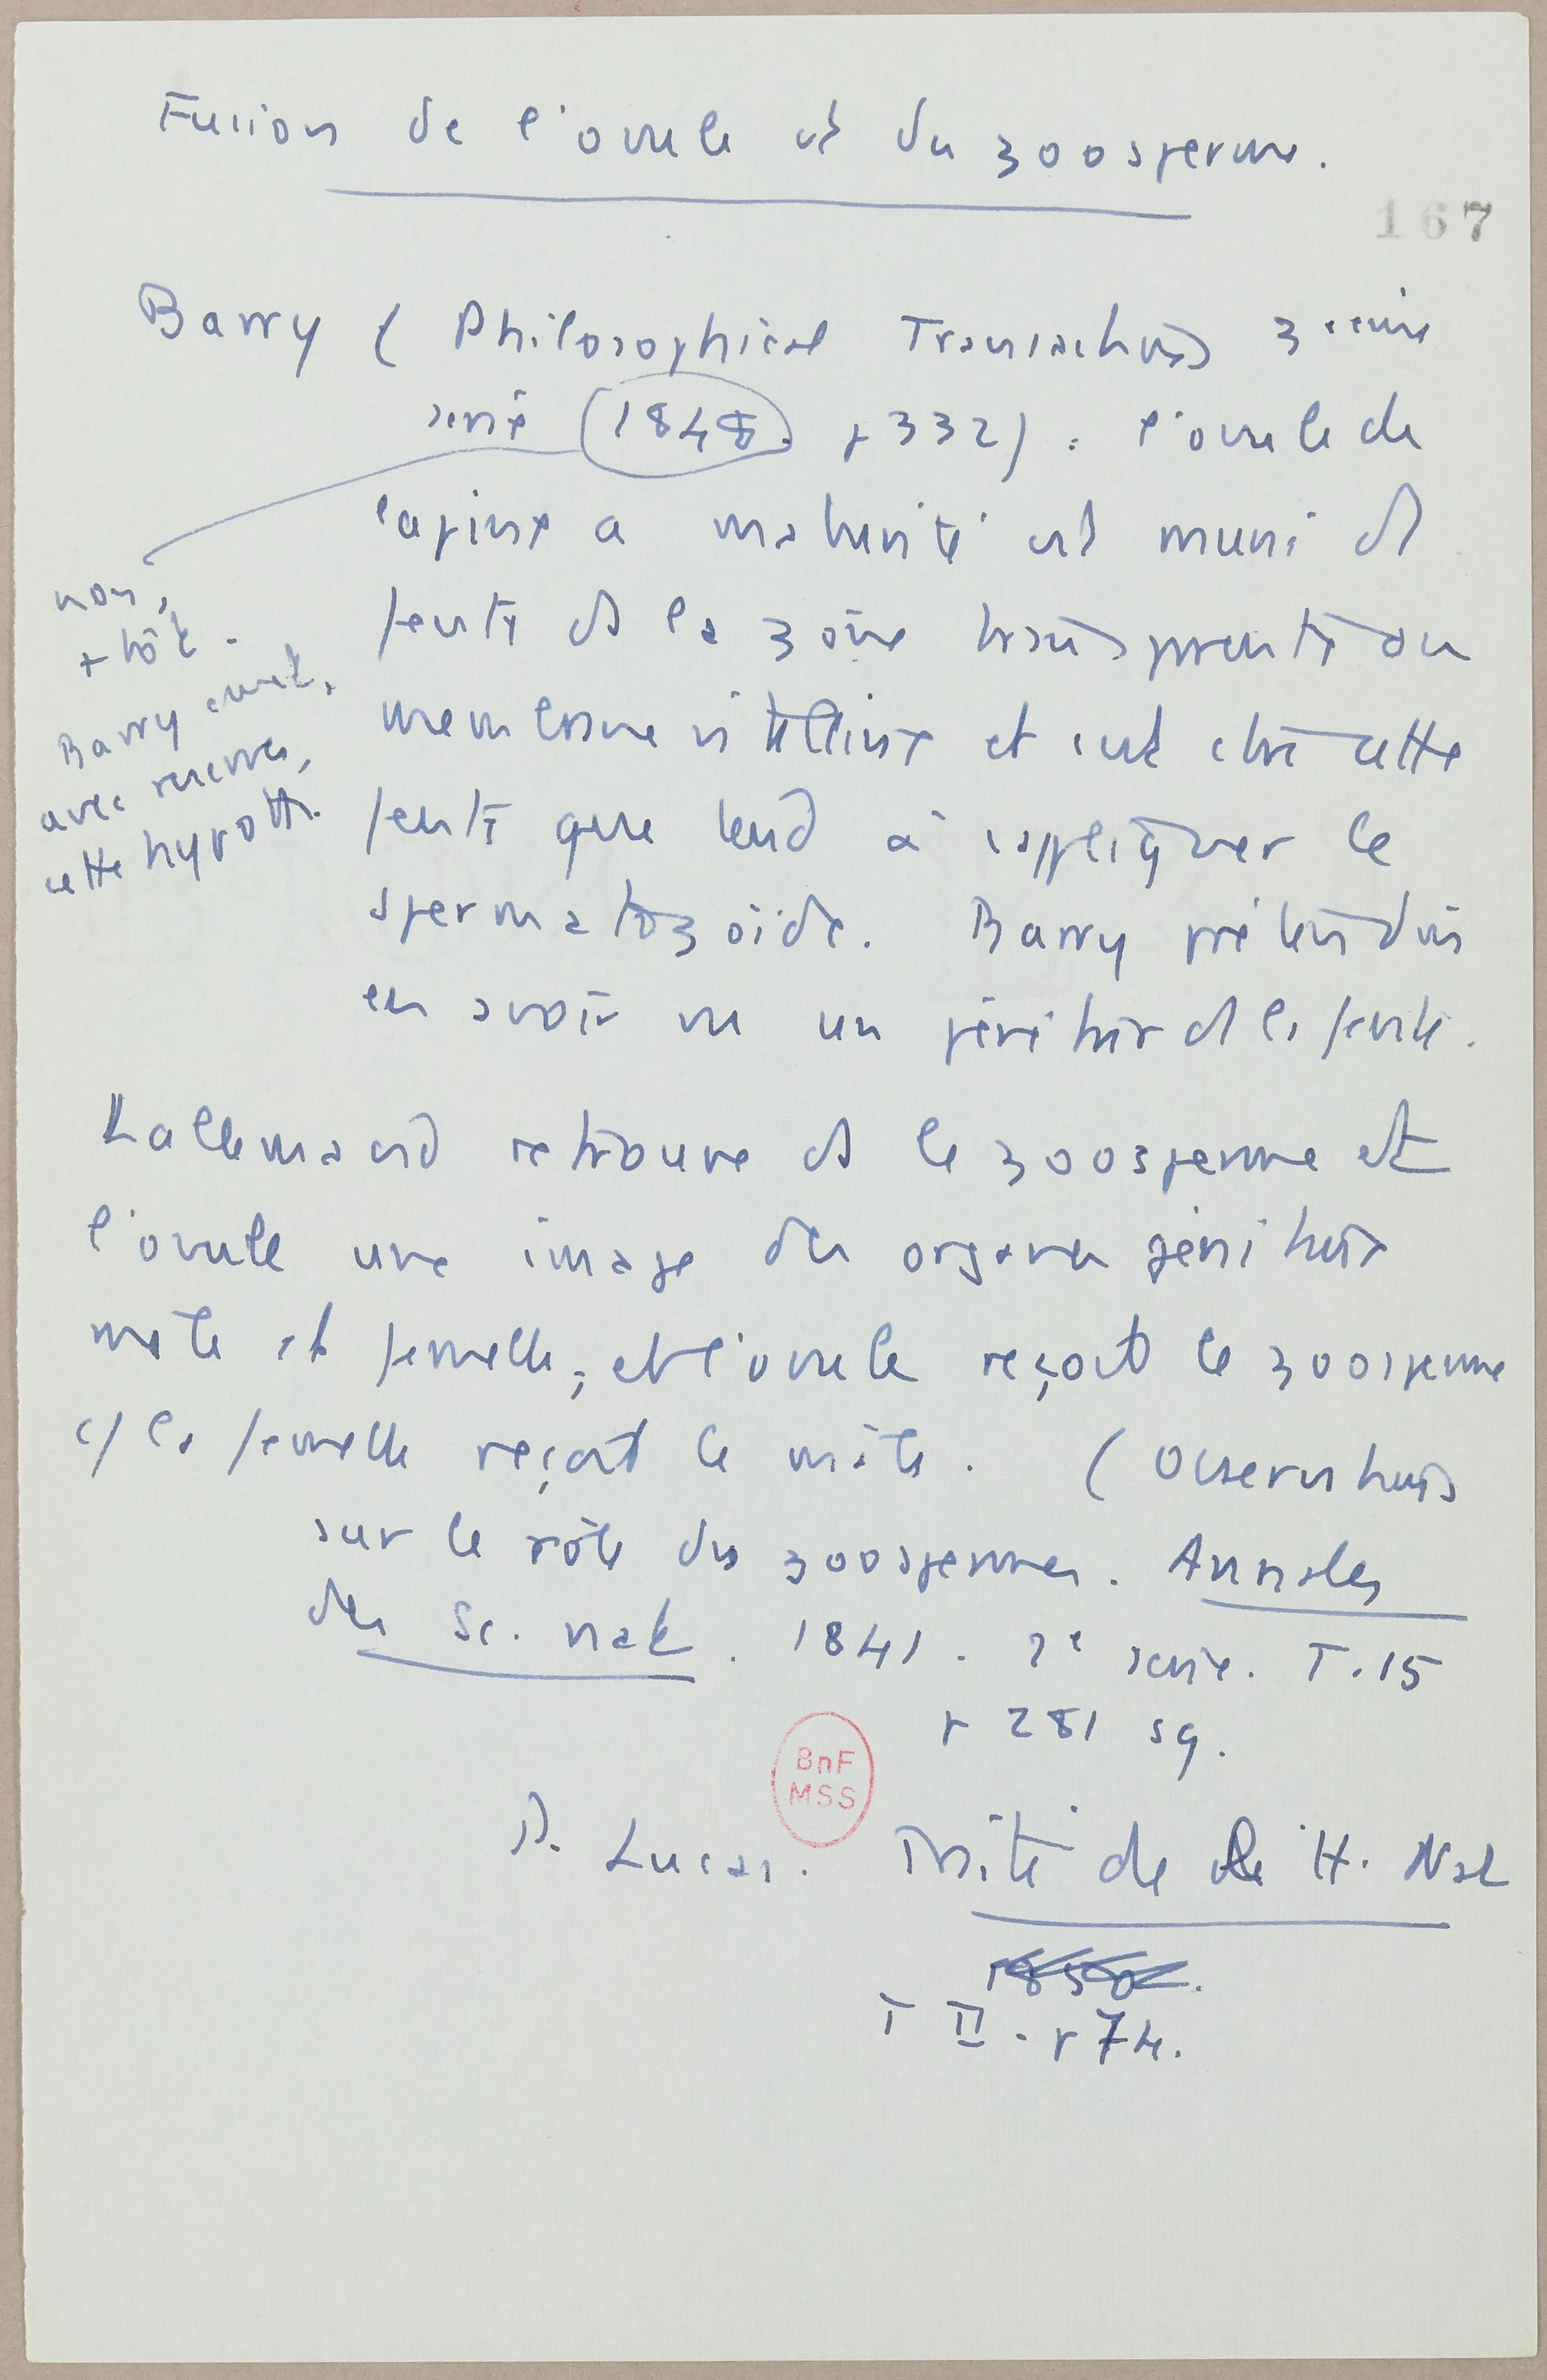 Fusion de l'ovule et du zoosperme.
167
Barry (Philosophical Transactions 3ieme
serie (1848. p 332) : l'ovule de
lapine a maturité est muni d
fente ds la zone transparente ou
membrane vitelline et c'est cette
fente que tend à s'appliquer le
spermatozoïde. Barry prétendait
en avoir vu un pénétrer ds la fente.
non,
+ tôt.
Barry émet,
avec reserves,
cette hypoth.
Lallemand retrouve ds le zoosperme et
l'ovule une image des organes génitaux
male et femelle, et l'ovule reçoit le zoosperme
c/ la femelle reçoit le mâle. (Observations
sur le rôle des zoospermes. Annales
des Sc. nat. 1841. 2e serie. T. 15
p 281 sq.
BnF
MSS
P. Lucas. Traité de l'H. Nat
1850.
T II. p 74.